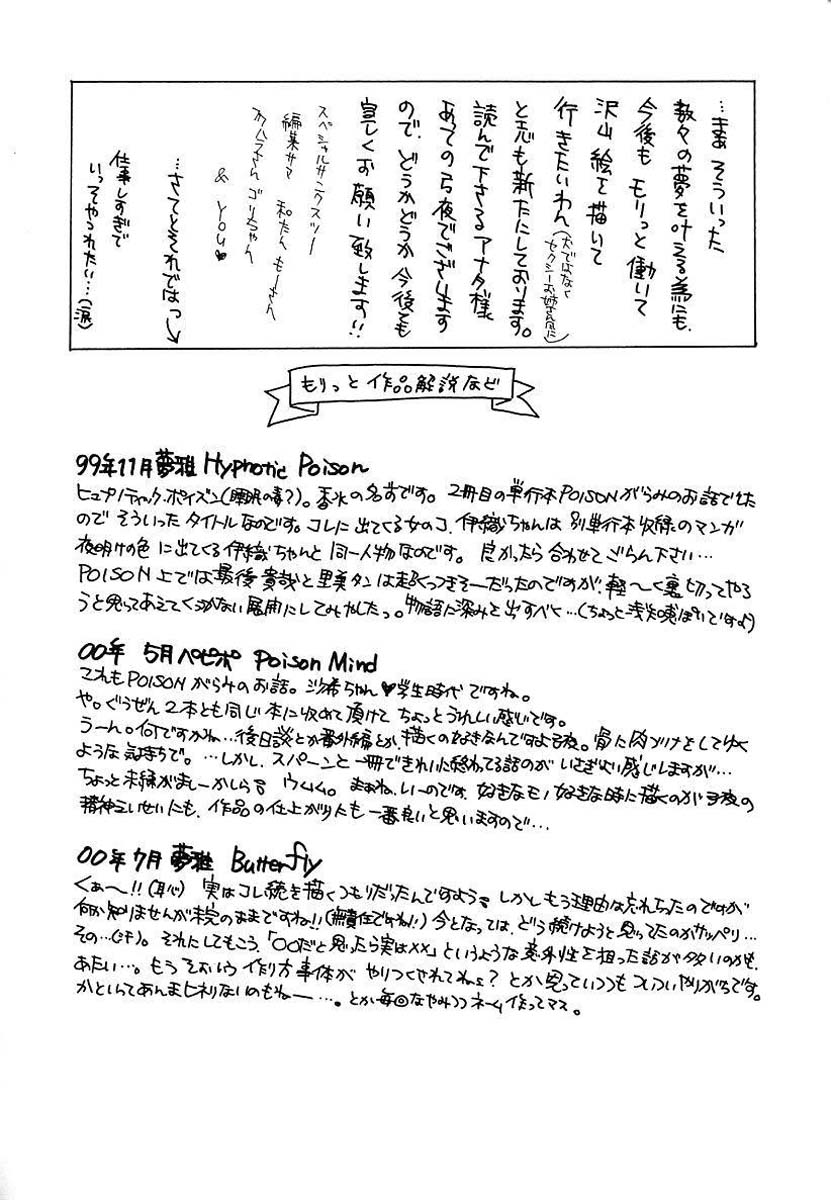 …まぁ そういった
数々の夢を叶える為にも、
今後も モリっと働いて
沢山 絵を描いて
行きたいわん(犬ではなく
セクシーお姉さん風に)
と志も新たにしております。
読んで下さるアナタ様
あっての弓夜でございます
ので、どうかどうか今後とも
宜しくお願い致します!!
スペシャルサンクスツー
編集サマ 和たん もーさん
さん ゴリちゃん
& YOU♥
…さてとそれではっ↘
仕事しすぎで
いっそやつれたい…(涙)
もりっと 作品解説など
99年11月夢雅 Hypnotic Poison
ヒュプノティック・ポイズン(睡眠の毒?)。香水の名前です。2冊目の単行本POISONがらみのお話でした
ので そういった タイトルなのです。コレに出てくる女のコ、伊織ちゃんは 別単行本収録のマンガ
夜明けの色 に出てくる伊織ちゃんと 同一人物なのです。 良かったら 合わせて ごらん下さい…
POISON上では最後 貴哉と里美タンは超くっつきそーだったのですが、軽〜く裏切ってやろ
うと思ってあえてくっつかない展開にしてみやしたっ。物語に深みを出すべく…(ちょっと浅知恵ぽいですよ)
00年 5月 ペピポ Poison Mind
これもPOISONがらみのお話。沙希ちゃん♥学生時代 ですね。
や。ぐうぜん 2本とも同じ本に収めて頂けて ちょっとうれしい感じです。
うーん。何ですかね…後日談とか番外編とか、描くの好きなんですよ弓夜。骨に肉づけをしてゆく
ような 気持ちで。…しかし、スパーンと一冊できれいに終わってる話のが いさぎよい感じしますが…
ちょっと未練がましーかしら ウムム。まぁね、いーのです、好きなモノ 好きな時に 描くのが 弓夜の
精神えいせいにも、作品の仕上がりにも 一番良いと思いますので…
00年7月 夢雅 Butterfly
くぁ〜!!(恥) 実はコレ続きを描くつもりだったんですよう しかしもう理由は忘れちったのですが
何か知りませんが未完のままですね!!(無責任ですね!)今となっては、どう続けようと思ってたのかサッパリ…
その…(汗)。それにしてもこう、「○○だと思ったら実は××」というような意外性を狙った話が多いのかも、
あたい…。もう そおいう 作り方事体が やりつくされてねぇ?とか思っていつつもついついやりがちです。
かといってあんまヒネリないのもねー…。とか毎回なやみつつ ネーム作ってマス。